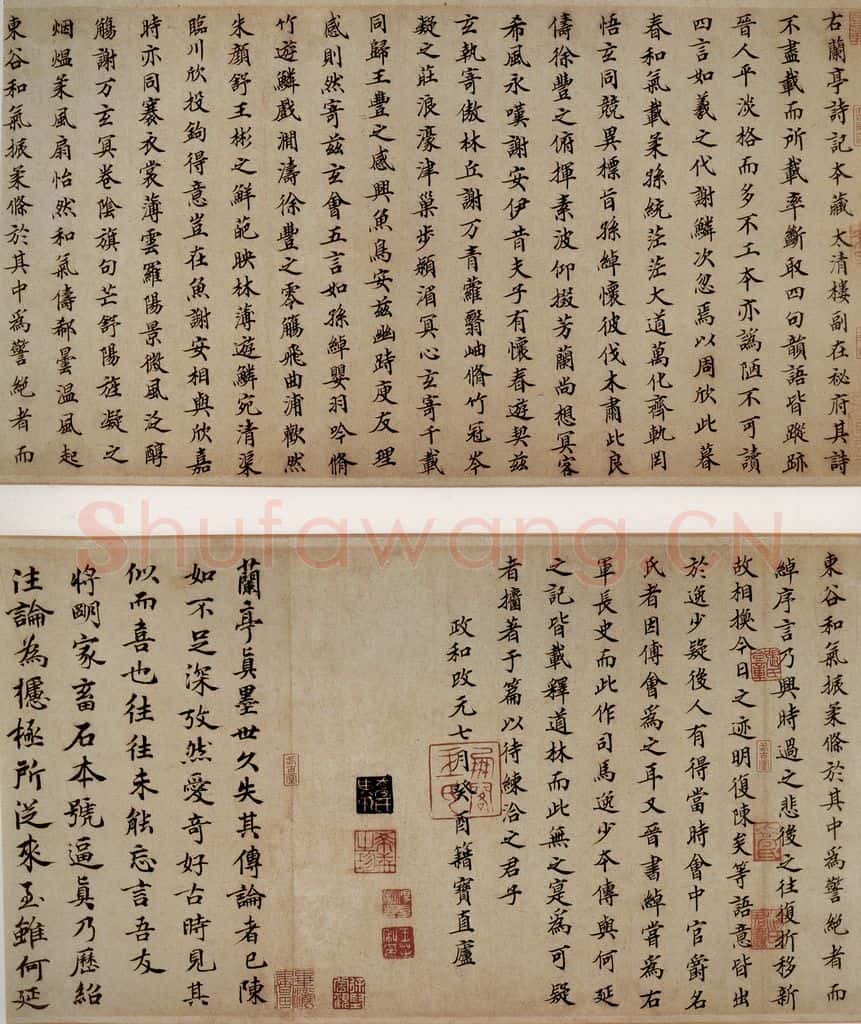 右蘭亭詩記本藏太清樓副在祕府其詩
不盡載而所載率斷取四句韻語皆蹤跡
晉人平淡格而多不工本亦譌陋不可讀
四言如羲之代謝鱗次忽焉以周欣此暮
春和氣載柔孫統茫茫大道萬化齊軌罔
悟玄同競異標旨孫綽懷彼伐木肅此良
儔徐豐之俯揮素波仰掇芳蘭尚想冥客
希風永嘆謝安伊昔夫子有懷春遊契茲
玄執寄傲林丘謝万青蘿翳岫脩竹冠岑
凝之莊浪濠津巢步潁湄冥心玄寄千載
同歸王豐之感興魚鳥安茲幽跱庾友理
感則然寄茲玄會五言如孫綽嬰羽吟脩
竹遊鱗戲瀾濤徐豐之零觴飛曲浦歡然
朱顏舒王彬之鮮葩映林薄遊鱗宛清渠
臨川欣投鉤得意豈在魚謝安相與欣嘉
時亦同褰衣裳薄雲羅陽景微風泛醇
觴謝万玄冥卷陰旗句芒舒陽旌凝之
烟熅柔風扇怡然和氣儔郗曇温風起
東谷和氣振柔條於其中為警絶者而
Shufawang.CN
東谷和氣振柔條於其中為警絶者而
綽序言乃興時過之悲後之往復折移新
故相換今日之迹明復陳矣等語意皆出
於逸少疑後人有得當時會中官爵名
氏者因傅會為之耳又晉書綽嘗為右
軍長史而此作司馬逸少本傳與何延
之記皆載釋道林而此無之寔為可疑
者擂著于篇以待練洽之君乎
政和改元七月癸酉籍寶直廬
蘭亭真墨世久失其傳論者已陳
如不足深攷然愛奇好古時見其
似而喜也往往未能忘言吾友
將明家畜石本號逼真乃歷紹
注論為㩀極所從來至雖何延